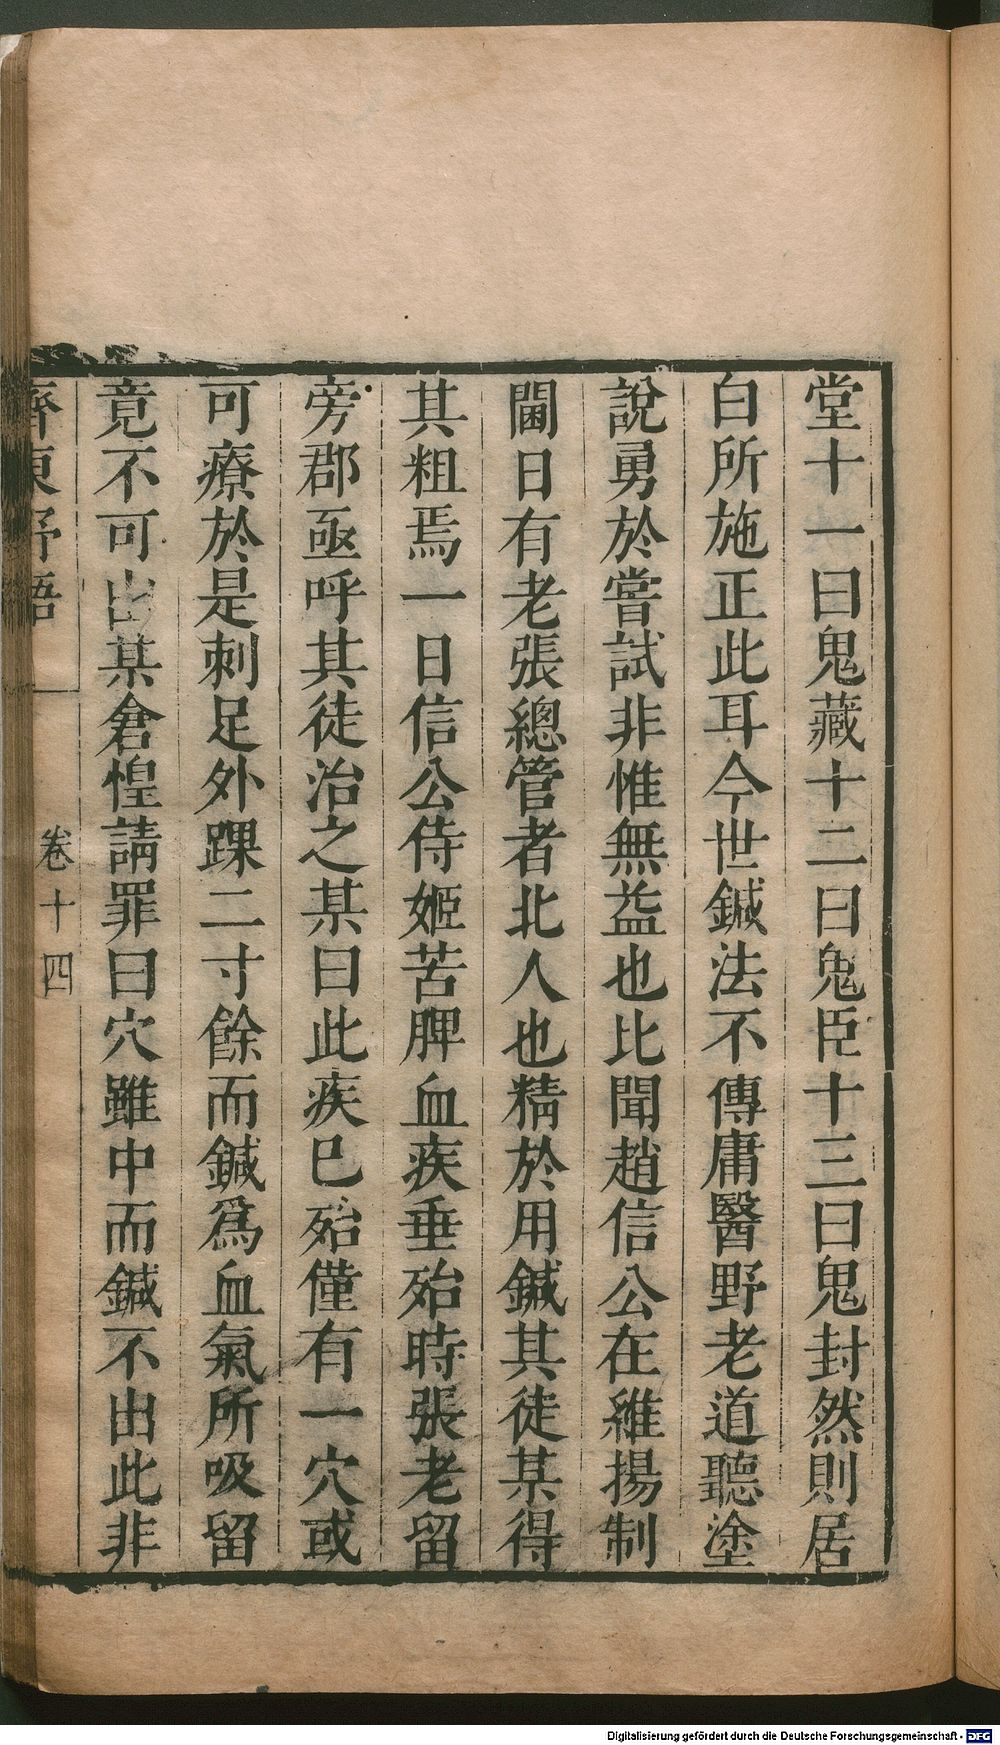 堂十一曰鬼藏十二曰鬼臣十三曰鬼封然則居
白所施正此耳今世鍼法不傳庸醫野老道聽塗
說勇於嘗試非惟無益也比聞趙信公在維揚制
閫日有老張總管者北人也精於用鍼其徒某得
其粗焉一日信公侍姬苦脾血疾垂殆時張老留
旁郡亟呼其徒治之某曰此疾已殆僅有一穴或
可療於是刺足外踝二寸餘而鍼爲血氣所吸留
竟不可出某倉惶請罪曰穴雖中而鍼不出此非
齊東野語
卷十四
Digitalisierung gefördert durch die Deutsche Forschungsgemeinschaft - DFG